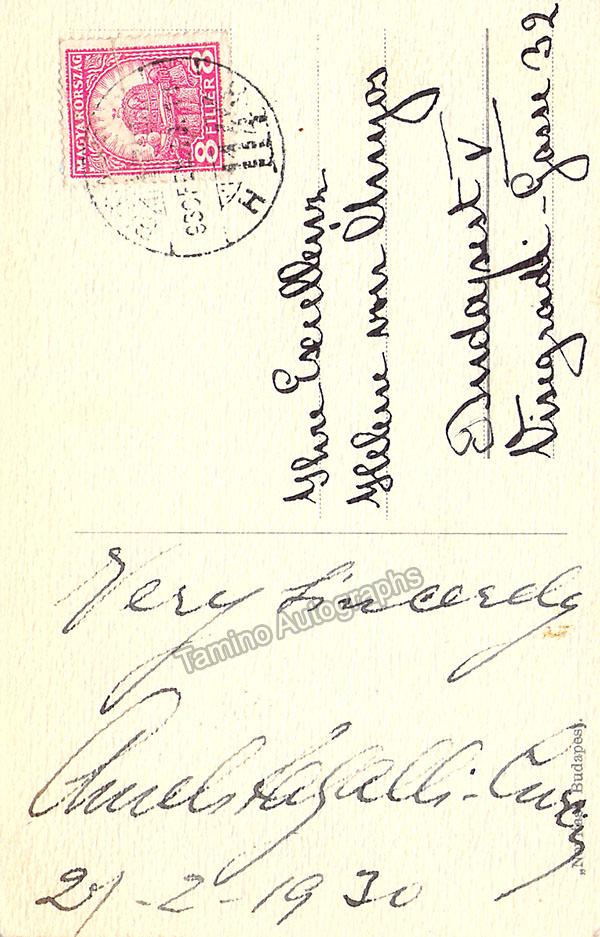 MAGYARORSZÁG
8 FILLÉR 8
Ihre Excellenz
Helene von
Budapest V
Visegradi-Gasse 32
Very Sincerely
Amelita Galli-Curci
-2-1930
Tamino Autographs
Budapest.